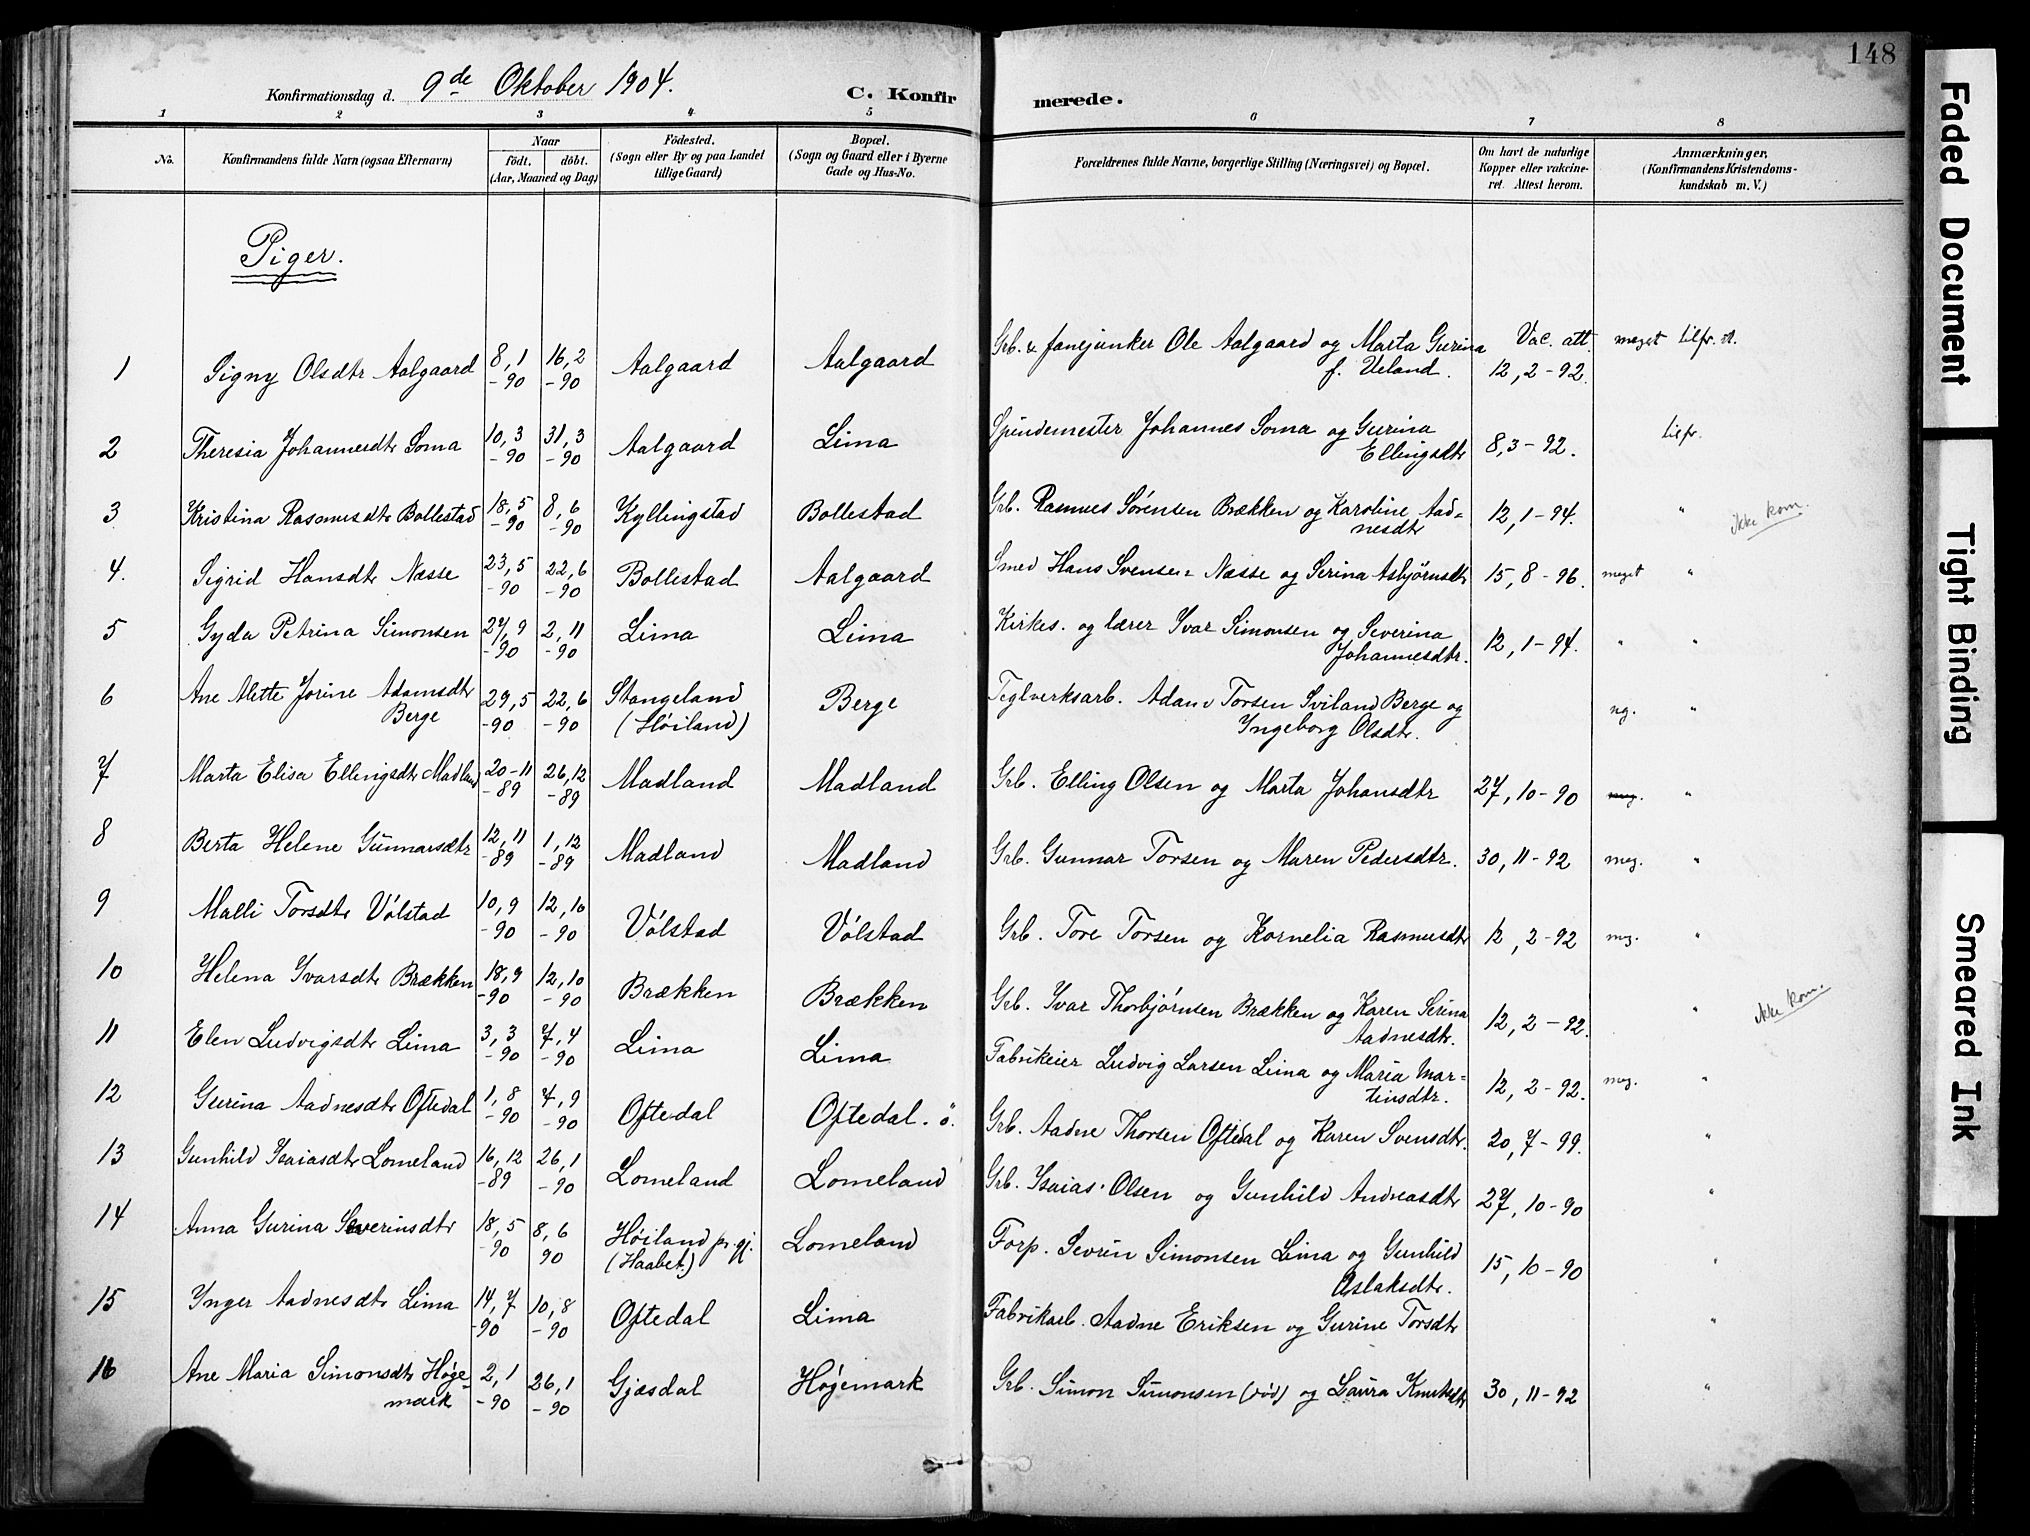 148
Konfirmationsdag d. 9de Oktober 1904.
C. Konfirmerede.
1 2 3 4 5 6 7 8
No.
Konfirmandens fulde Navn (ogsaa Efternavn)
Naar
födt. döbt.
(Aar, Maaned og Dag)
Födested.
(Sogn eller By og paa Landet
tillige Gaard)
Bopæl.
(Sogn og Gaard eller i Byerne
Gade og Hus-No.
Forældrenes fulde Navne, borgerlige Stilling (Næringsvei) og Bopæl.
Om havt de naturlige
Kopper eller vakcine-
ret. Attest herom.
Anmærkninger,
(Konfirmandens Kristendoms-
kundskab m. V.)
Piger.
1 Signy Olsdtr Aalgaard 8,1 -90 16,2 -90 Aalgaard Aalgaard Grb. & fanejunker Ole Aalgaard og Marta Gurina f. Veland. Vac. att. 12,2-92. meget tilfr.
2 Theresia Johannesdtr Soma 10,3 -90 31,3 -90 Aalgaard Lima Spindemester Johannes Soma og Gurina Ellingsdtr 8,3-92. tilfr.
3 Kristina Rasmusdtr Bollestad 18,5 -90 8,6 -90 Kyllingstad Bollestad Grb. Rasmus Sørensen Brækken og Karoline Aad=nesdtr 12,1-94. " ikke kom.
4. Sigrid Hansdtr Næsse 23,5 -90 22,6 -90 Bollestad Aalgaard Smed Hans Svensen Næsse og Serina Asbjørnsdtr 15,8-96. meget "
5 Gyda Petrina Simonsen 27,9 -90 2,11 -90 Lima Lima Kirkes. og lærer Ivar Simonsen og Severina Johannesdtr. 12,1-94. " "
6 Ane Alette Jorine Adamsdtr Berge 29,5 -90 22,6 -90 Stangeland (Høiland) Berge Teglverksarb. Adam Torsen Sviland Berge og Ingeborg Olsdtr. ng. "
7 Marta Elisa Ellingsdtr Madland 20-11 -89 26,12 -89 Madland Madland Grb. Elling Olsen og Marta Johansdtr 27,10-90 meg. "
8 Berta Helene Gunnarsdtr 12,11 -89 1,12 -89 Madland Madland Grb. Gunnar Torsen og Maren Pedersdtr. 30,11-92 meg. "
9 Malli Torsdtr Vólstad 10,9 -90 12,10 -90 Vólstad Vólstad Grb. Tore Torsen og Kornelia Rasmusdtr 12,2-92 meg. "
10 Helena Ivarsdtr Brækken 18,9 -90 12,10 -90 Brækken Brækken Grb. Ivar Thorbjørnsen Brækken og Karen Serina Aadnesdtr. 12,2-92. " ikke kom.
11 Elen Ludvigsdtr Lima 3,3 -90 7,4 -90 Lima Lima Fabrikeier Ludvig Larsen Lima og Maria Mar=tinsdtr. 12,2-92. meg. "
12 Gurina Aadnesdtr Oftedal 1,8 -90 4,9 -90 Oftedal Oftedal. ö. Grb. Aadne Thorsen Oftedal og Karen Svensdtr. 20,7-99. "
13 Gunhild Isaiasdtr Lomeland 16,12 -89 26,1 -90 Lomeland Lomeland Grb. Isaias Olsen og Gunhild Andreasdtr 27,10-90 "
14 Anna Gurina Severinsdtr 18,5 -90 8,6 90 Høiland pr.gj. (Haabet) Lomeland Forp. Sevrin Simonsen Lima og Gunhild Aslaksdtr. 15,10-90 "
15 Inger Aadnesdtr Lima 14,7 -90 10,8 -90 Oftedal Lima Fabrikarb. Aadne Eriksen og Gurine Torsdtr "
16 Ane Maria Simonsdtr Høge=mark 2,1 -90 26,1 -90 Gjæsdal Høgemark Grb. Simon Simonsen (död) og Laura Knutsdtr 30,11-92 "
Faded Document
Tight Binding
Smeared Ink